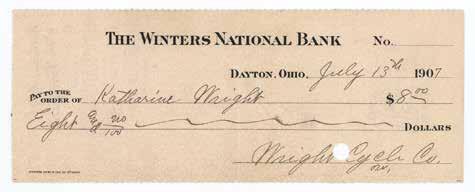 THE WINTERS NATIONAL BANK No.
DAYTON, OHIO, July 13th 1907
PAY TO THE ORDER OF Katharine Wright $8.00
Eight and no/100 DOLLARS
Wright Cycle Co.